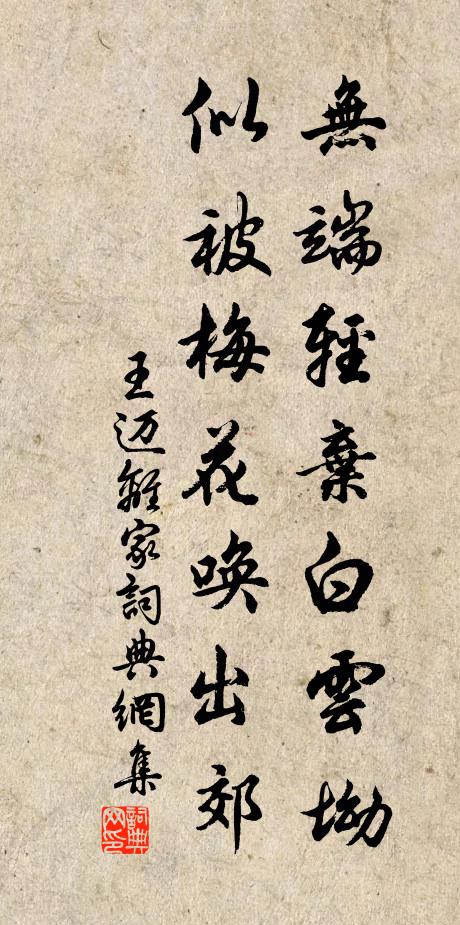 無端輕棄白雲坳
似被梅花喚出郊
王迈離家詞典網集
詞典網印